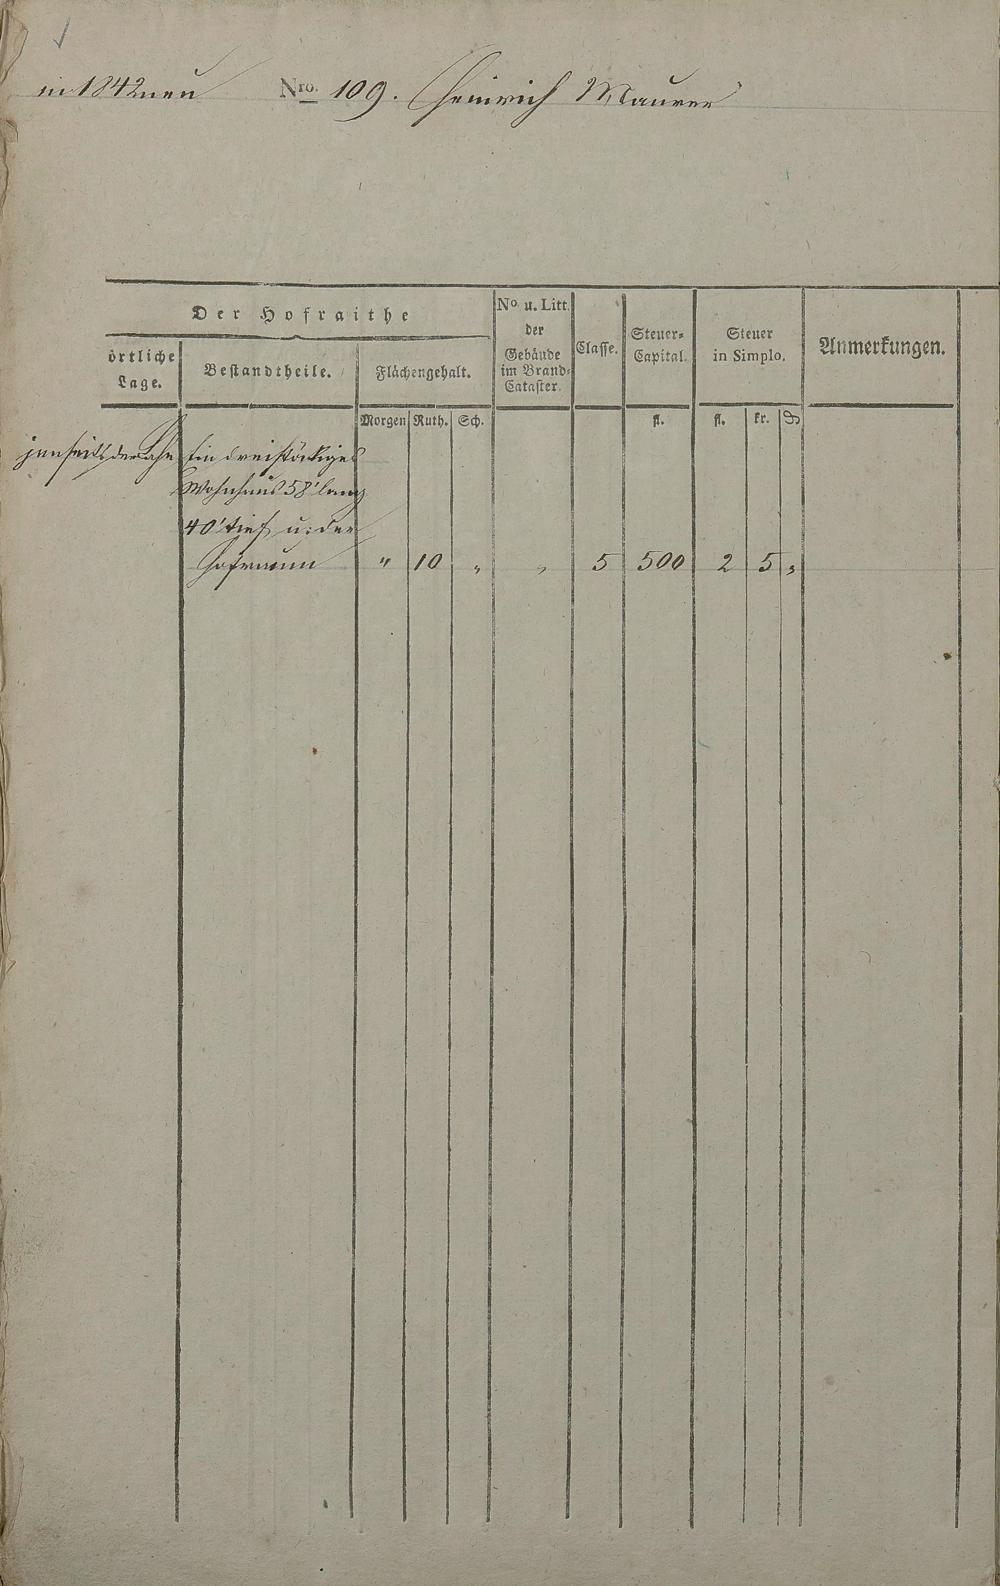 in 1842 neu Nro. 109. Heinrich Maurer
Der Hofraithe
örtliche Lage.
Bestandtheile.
Flächengehalt.
No u. Litt. der Gebäude im Brand-Cataster.
Classe.
Steuer-Capital.
Steuer in Simplo.
Anmerkungen.
Morgen Ruth. Sch. fl. fl. kr. ₰
jenseits der Lahn Ein dreistöckiges
Wohnhaus 58' lang
40' tief u: der
Hofraum " 10 " " 5 500 2 5 "